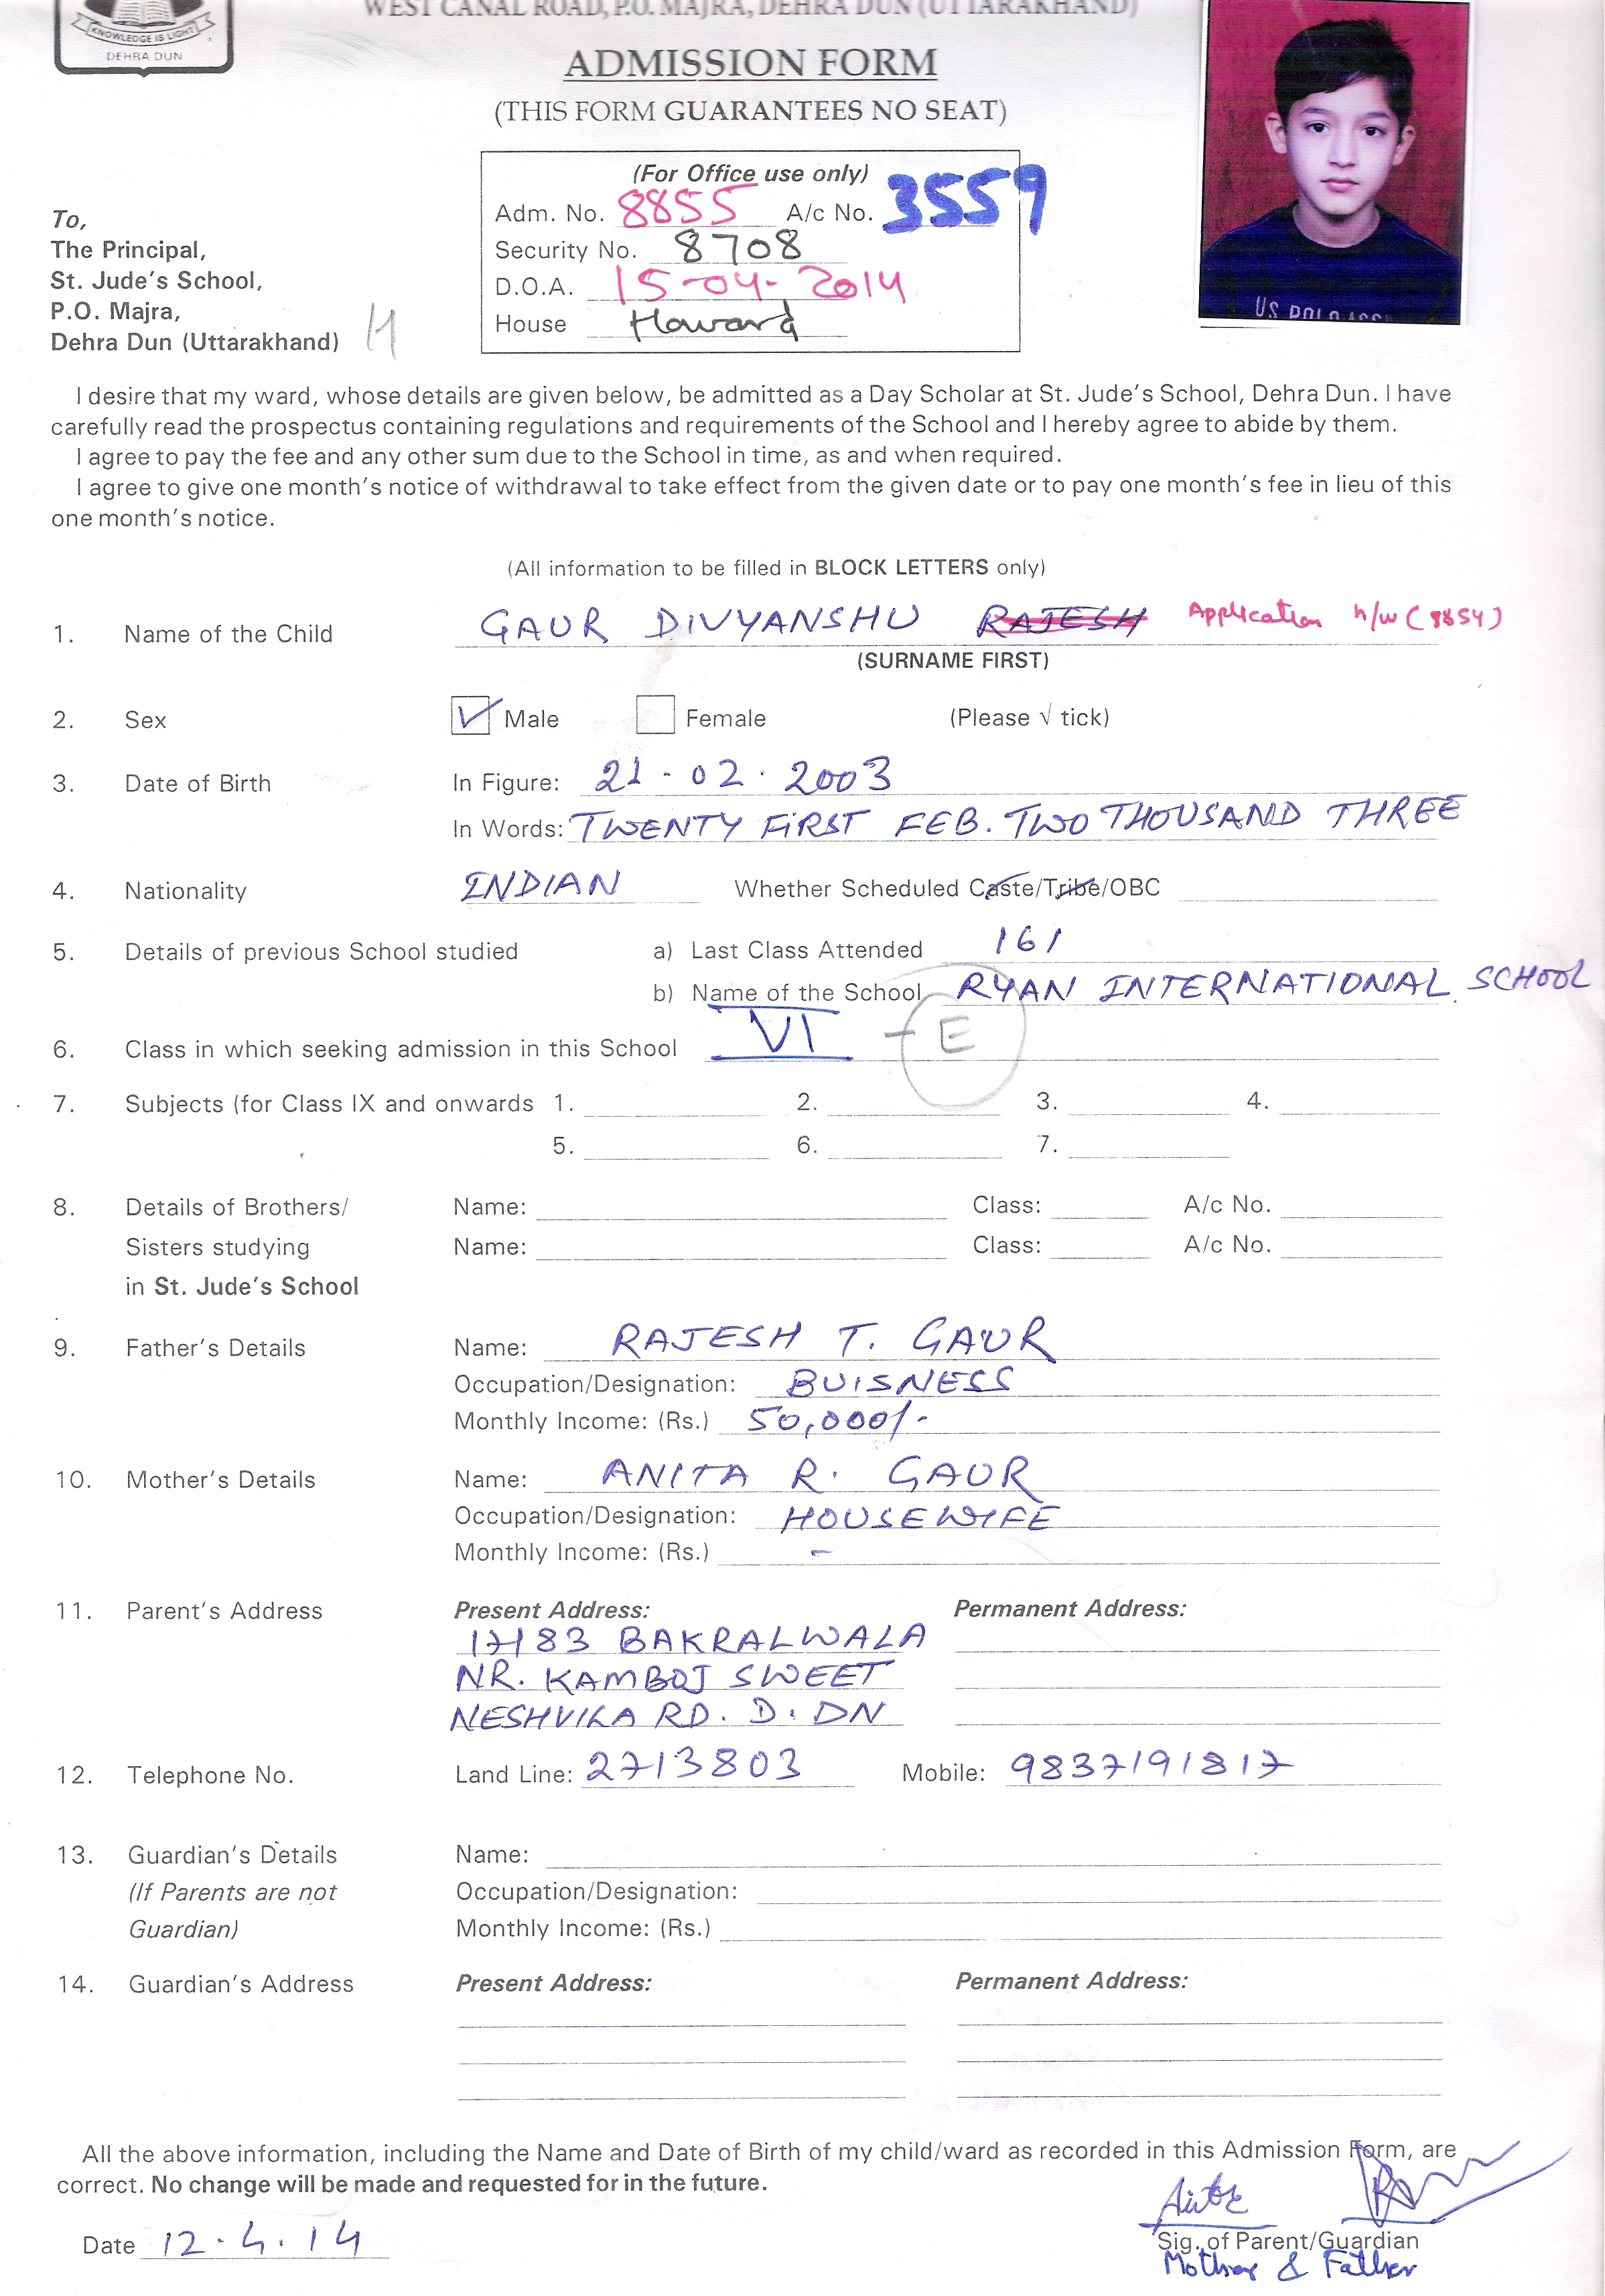 WEST CANAL ROAD, P.O. MAJRA, DEHRA DUN (UTTARAKHAND)
KNOWLEDGE IS LIGHT
DEHRA DUN
ADMISSION FORM
(THIS FORM GUARANTEES NO SEAT)
(For Office use only)
Adm. No. 8855 A/c No. 3559
Security No. 8708
D.O.A. 15-04-2014
House Howard
US POLO ASS
To,
The Principal,
St. Jude's School,
P.O. Majra,
Dehra Dun (Uttarakhand) H
I desire that my ward, whose details are given below, be admitted as a Day Scholar at St. Jude's School, Dehra Dun. I have
carefully read the prospectus containing regulations and requirements of the School and I hereby agree to abide by them.
I agree to pay the fee and any other sum due to the School in time, as and when required.
I agree to give one month's notice of withdrawal to take effect from the given date or to pay one month's fee in lieu of this
one month's notice.
(All information to be filled in BLOCK LETTERS only)
1. Name of the Child GAUR DIVYANSHU RAJESH Application n/w (8854)
(SURNAME FIRST)
2. Sex Male Female (Please √ tick)
3. Date of Birth In Figure: 21-02.2003
In Words: TWENTY FIRST FEB. TWO THOUSAND THREE
4. Nationality INDIAN Whether Scheduled Caste/Tribe/OBC
5. Details of previous School studied a) Last Class Attended
b) Name of the School RYAN INTERNATIONAL SCHOOL
6. Class in which seeking admission in this School VI - E
7. Subjects (for Class IX and onwards 1. 2. 3. 4.
5. 6. 7.
8. Details of Brothers/ Name: Class: A/c No.
Sisters studying Name: Class: A/c No.
in St. Jude's School
9. Father's Details Name: RAJESH T. GAUR
Occupation/Designation: BUISNESS
Monthly Income: (Rs.) 50,000/-
10. Mother's Details Name: ANITA R. GAUR
Occupation/Designation: HOUSEWIFE
Monthly Income: (Rs.) -
11. Parent's Address Present Address: Permanent Address:
17/83 BAKRALWALA
NR. KAMBOJ SWEET
NESHVILA RD. D. DN
12. Telephone No. Land Line: 2713803 Mobile: 9837191817
13. Guardian's Details Name:
(If Parents are not Occupation/Designation:
Guardian) Monthly Income: (Rs.)
14. Guardian's Address Present Address: Permanent Address:
All the above information, including the Name and Date of Birth of my child/ward as recorded in this Admission Form, are
correct. No change will be made and requested for in the future.
Date 12.4.14
Sig. of Parent/Guardian
Mother & Father